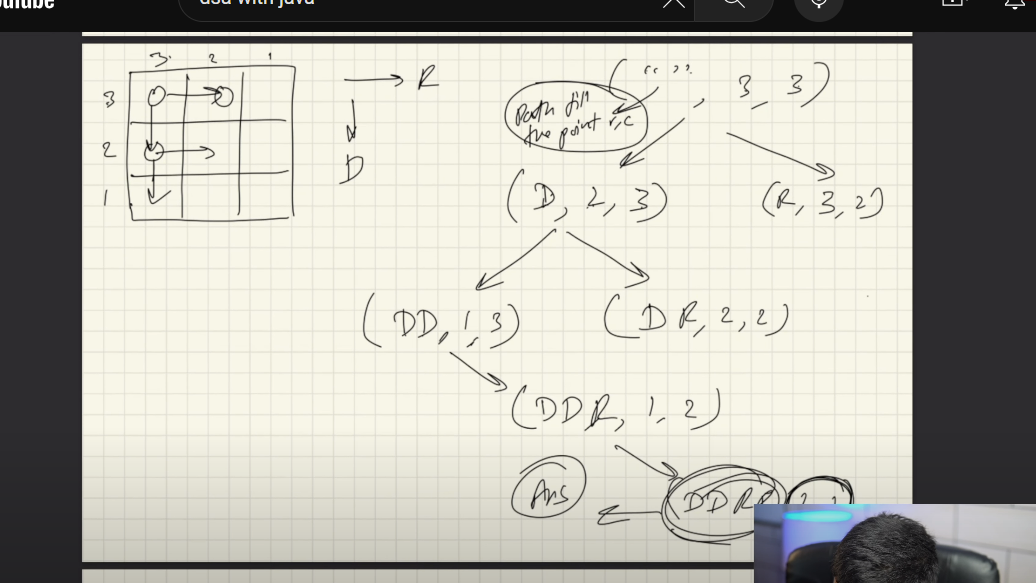 dsa with java
3 2 1
→ R
( " ", 3, 3)
3
Path till
the point r,c
2
D
(D, 2, 3)
(R, 3, 2)
1
(DD, 1, 3)
(DR, 2, 2)
(DDR, 1, 2)
Ans
DDRR